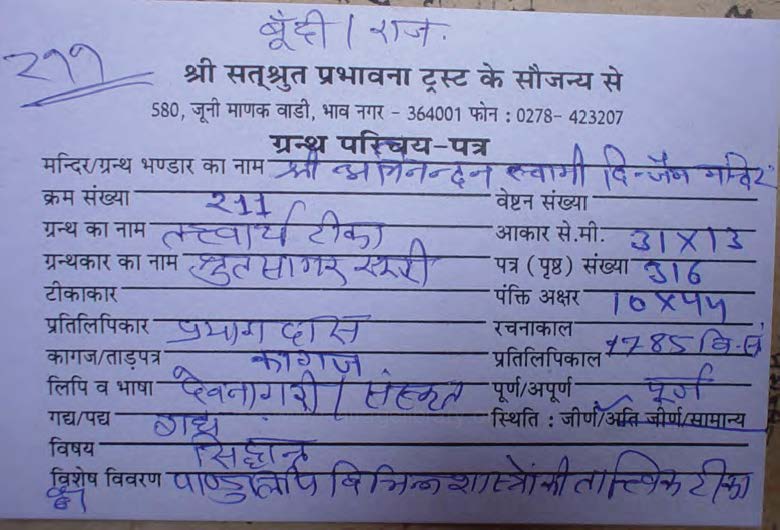 बूँदी / राज.
२११
श्री सत्‌श्रुत प्रभावना ट्रस्ट के सौजन्य से
580, जूनी माणक वाडी, भाव नगर - 364001 फोन : 0278- 423207
ग्रन्थ परिचय-पत्र
मन्दिर/ग्रन्थ भण्डार का नाम श्री अभिनन्दन स्वामी दि-जैन मन्दिर
क्रम संख्या 211 वेष्टन संख्या
ग्रन्थ का नाम तत्त्वार्थ टीका आकार से.मी. 31 X 13
ग्रन्थकार का नाम श्रुतसागर सूरी पत्र (पृष्ठ) संख्या 316
टीकाकार पंक्ति अक्षर 10 X 44
प्रतिलिपिकार प्रयाग दास रचनाकाल
कागज/ताड़पत्र कागज प्रतिलिपिकाल १785 वि-सं
लिपि व भाषा देवनागरी / संस्कृत पूर्ण/अपूर्ण पूर्ण
गद्य/पद्य गद्य स्थिति : जीर्ण/अति जीर्ण/सामान्य
विषय सिद्धान्त
विशेष विवरण पाण्डुलिपि विभिन्न शास्त्रों की तात्त्विक टीका